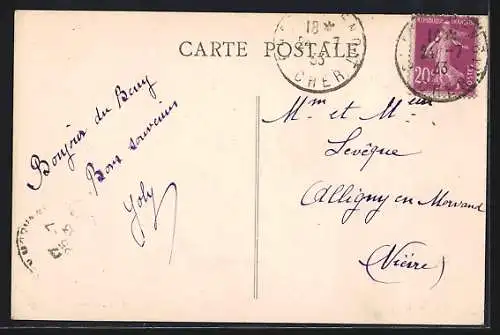 CARTE POSTALE
18*
7
33
CHER
RÉPUBLIQUE FRANÇAISE
20c
POSTES
7
33
Bonjour du Berry
Bons souvenirs
Joly
Mme et Mr
Levêque
Alligny en Morvand
(Nièvre)